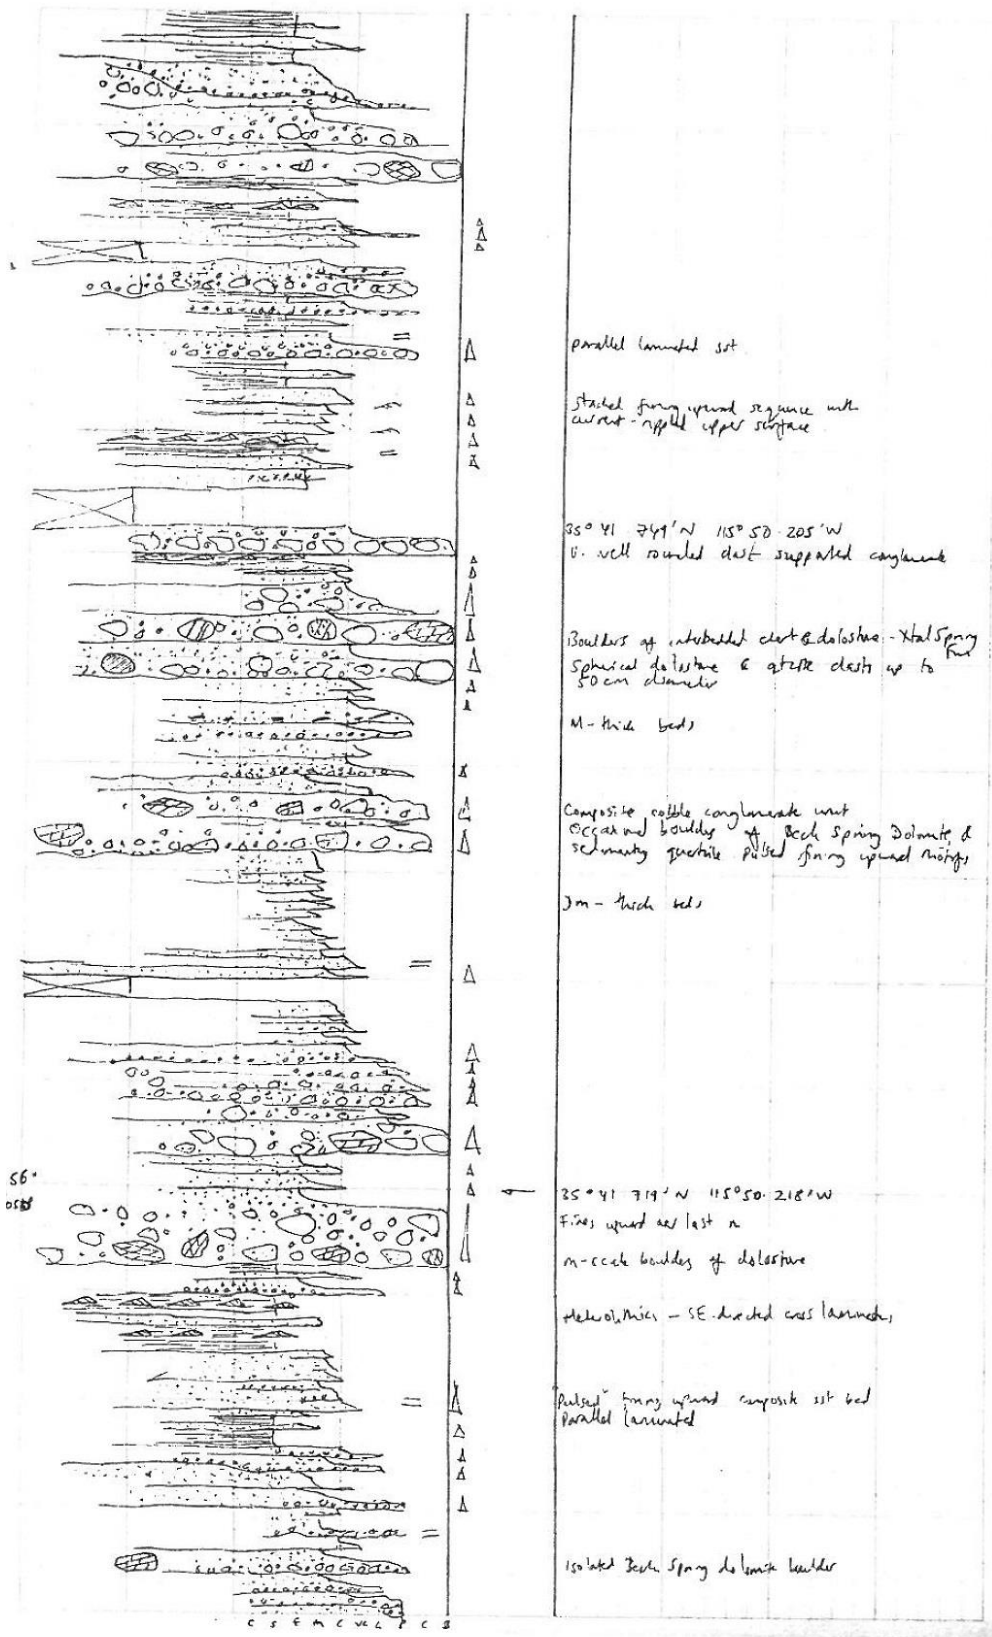 parallel laminated sst
stacked fining upward sequence with
current-rippled upper surface
35° 41 749'N 115° 50.205'W
V. well rounded clast supported conglomerate
Boulders of interbedded chert & dolostone - Xtal Spring
Fm
Spherical dolostone & qtzite clasts up to
50cm diameter
M-thick beds
Composite cobble conglomerate unit
Occasional boulders of Beck Spring Dolomite &
sedimentary quartzite pulsed fining upward motifs
Dm-thick beds
56°
35° 41 719'N 115° 50.218'W
Fines upward over last m
m-scale boulders of dolostone
Heterolithics - SE-directed cross laminates
"Pulsed" fining upward composite sst bed
Parallel laminated
Isolated Beck Spring dolomite boulder
C S F M C VC P C B